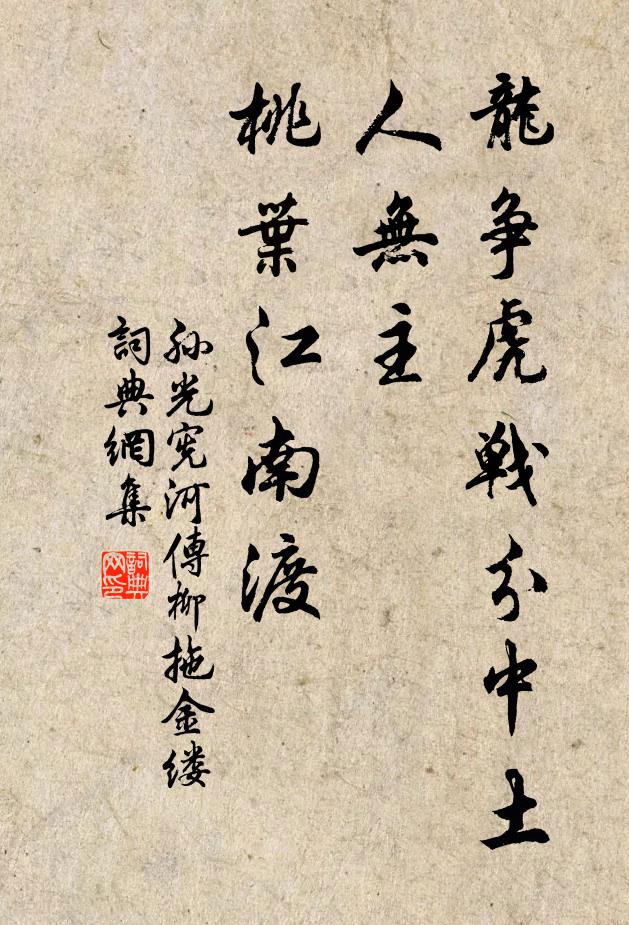 龍爭虎戰分中土
人無主
桃葉江南渡
孙光宪河傳柳拖金缕
詞典網集
詞典网印